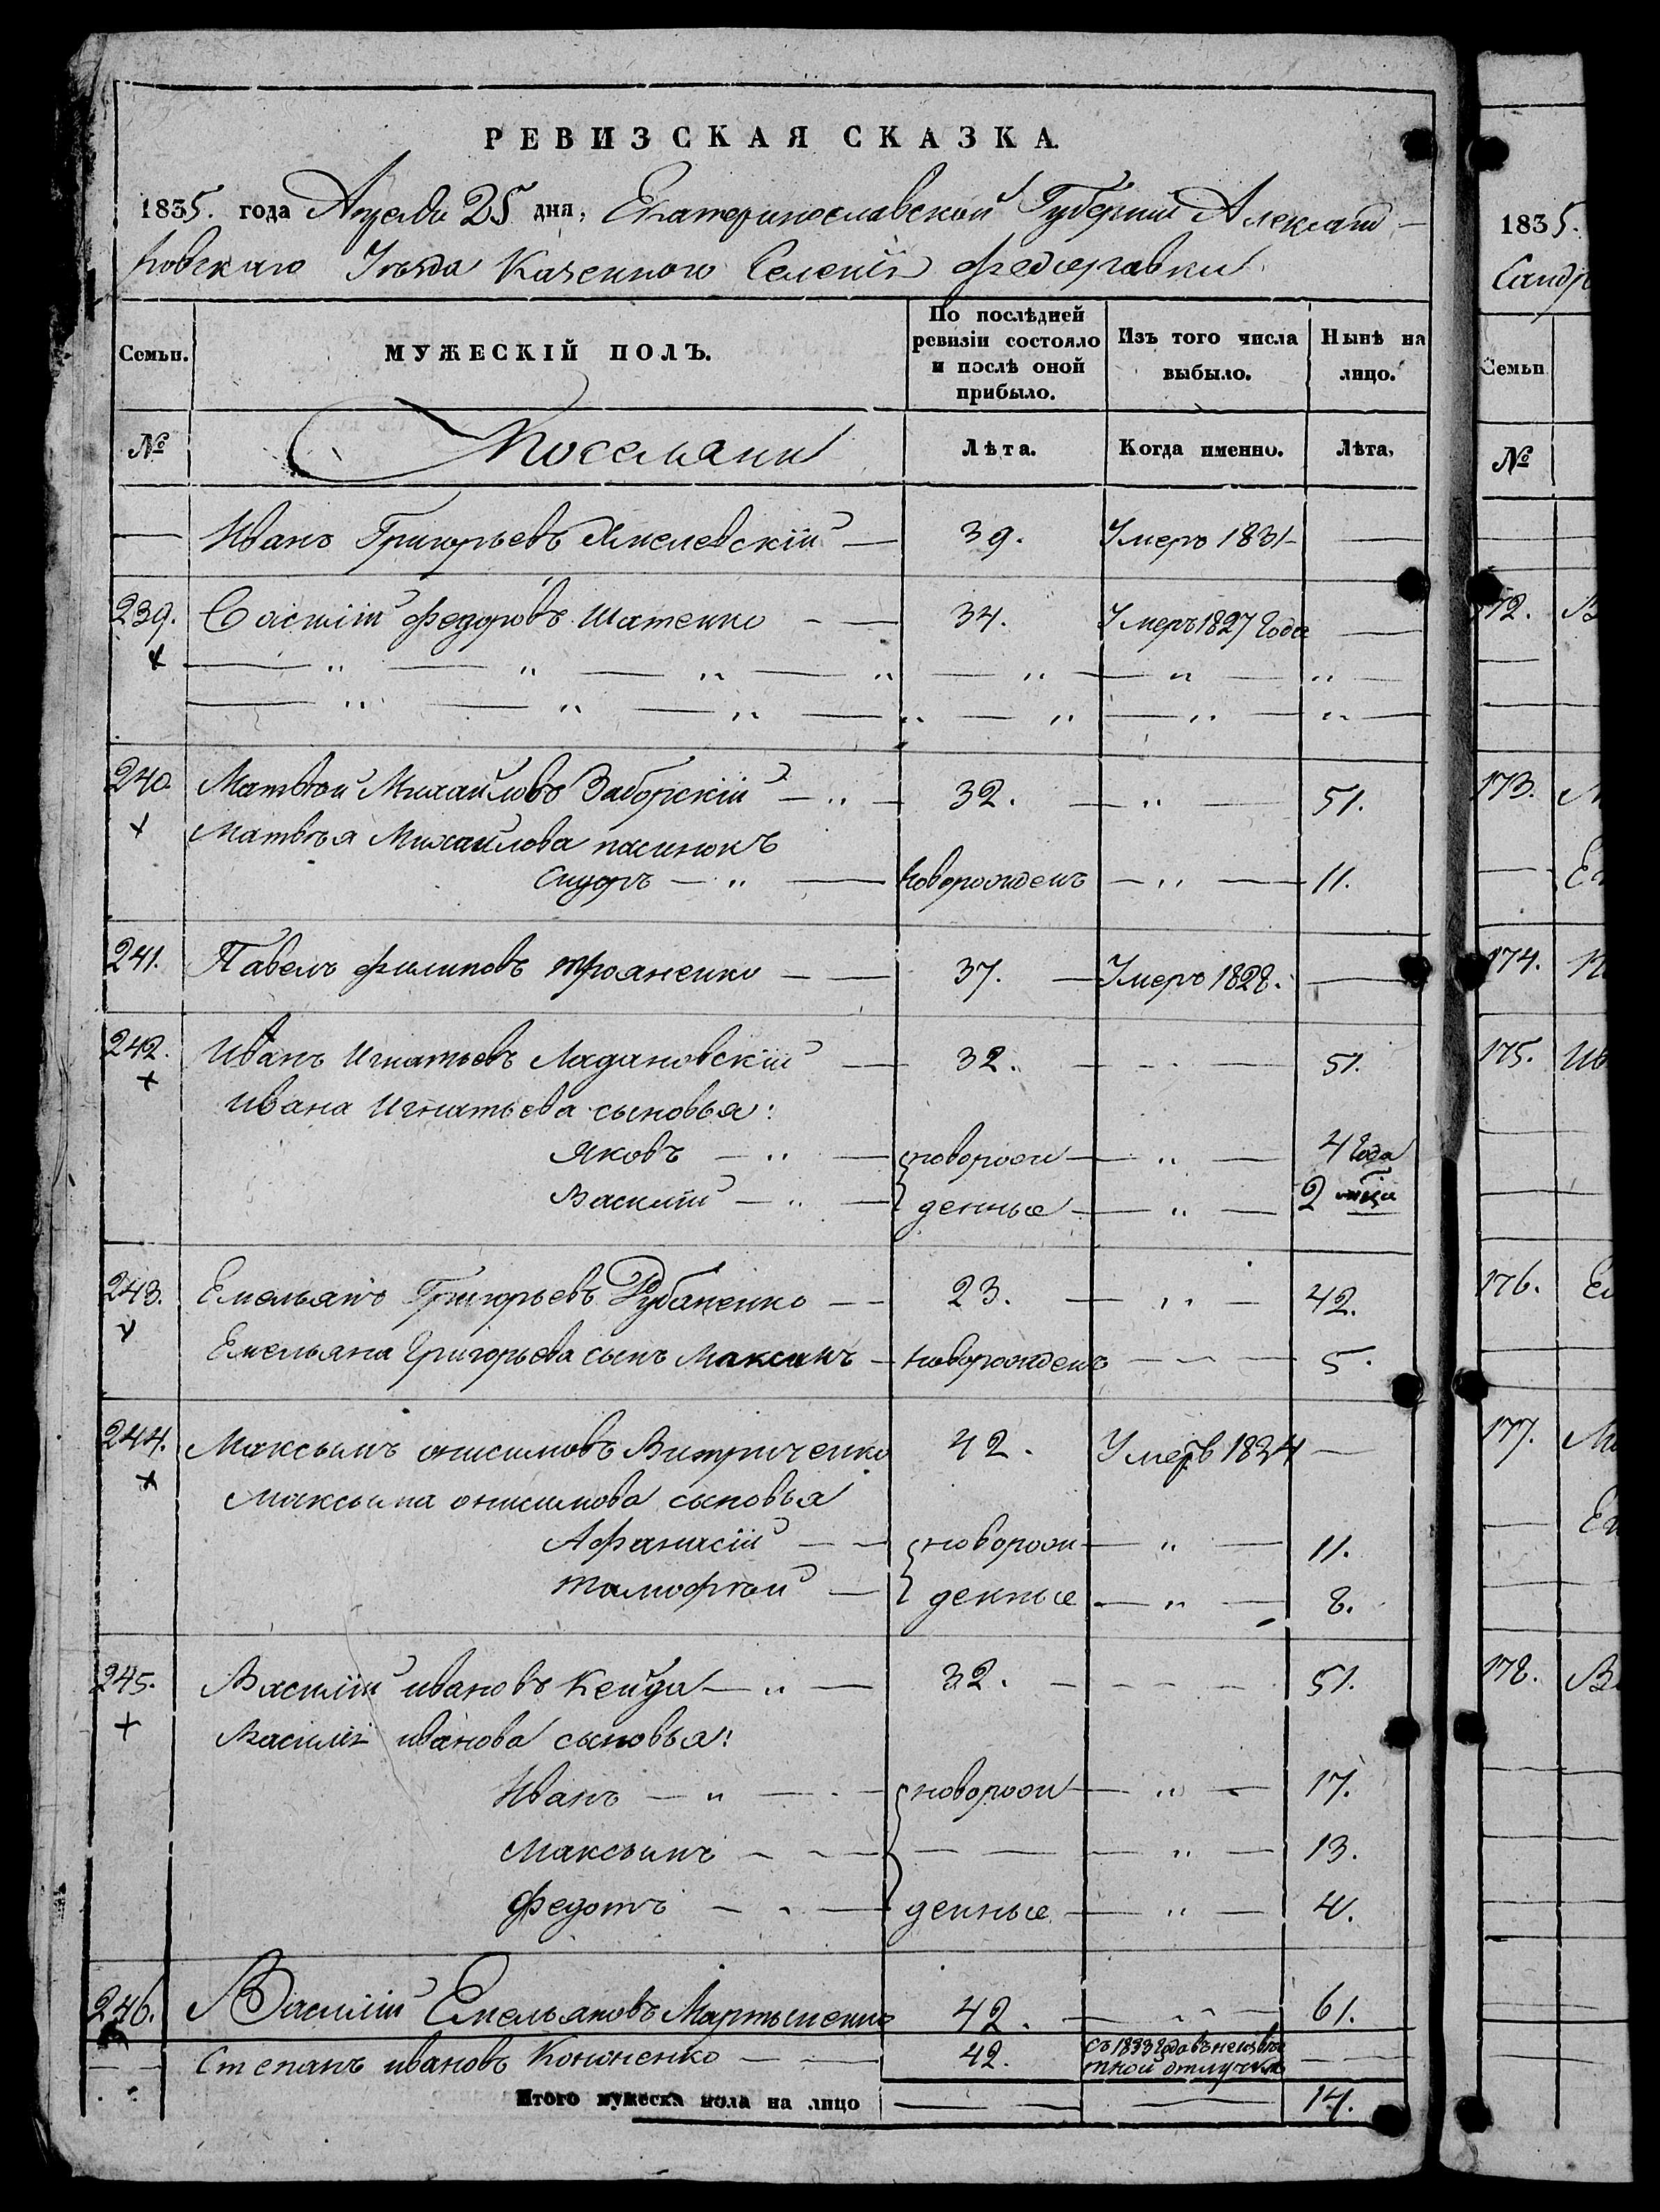 РЕВИЗСКАЯ СКАЗКА.
1835. года Апреля 25 дня, Екатеринославской Губернии Александ-
ровскаго Уезда Казенного Селения Федоровки
Семьи. МУЖЕСКІЙ ПОЛЪ. По послѣдней ревизіи состояло и послѣ оной прибыло. Изъ того числа выбыло. Нынѣ на лицо.
№ Поселяни Лѣта. Когда именно. Лѣта,
— Иванъ Григорьевъ Хмелевскій — 39. Умеръ 1831 —
239. Василій Федоровъ Шатенко — 34. Умеръ 1827 года —
240. Матвѣй Михайловъ Заборскій — 32. — 51.
Матвѣя Михайлова пасинокъ
Сидоръ — новорожденъ — 11.
241. Павелъ Филиповъ Трояненко — 37. — Умеръ 1828. —
242. Иванъ Игнатьевъ Ладановскій — 32. — 51.
Ивана Игнатьева сыновья:
Яковъ — новорож — 4 года
Василій — денные — 2 мѣся
243. Емельянъ Григорьевъ Рубаненко — 23. — 42.
Емельяна Григорьева сынъ Максимъ — новорожденъ — 5.
244. Максымъ Онисимовъ Витриченко 42. Умеръ 1834 —
Максыма Онисимова сыновья
Афанасій — новорож — 11.
Тимофѣй — денные — 8.
245. Василій Ивановъ Кейда — 32. — 51.
Василія Иванова сыновья:
Иванъ — новорож — 17.
Максымъ — — 13.
Федотъ — денные — 4.
246. Василій Емельяновъ Мартыненко 42. — 61.
— Степанъ Ивановъ Кононенко — 42. Съ 1833 года въ неизвѣс
тной отлучкѣ —
Итого мужеска пола на лицо — — 14.
1835.
Сандр
Семьи
№
172. В
173. М
Ем
174. П
175. Ив
176. Ем
177. Ма
178. Ва